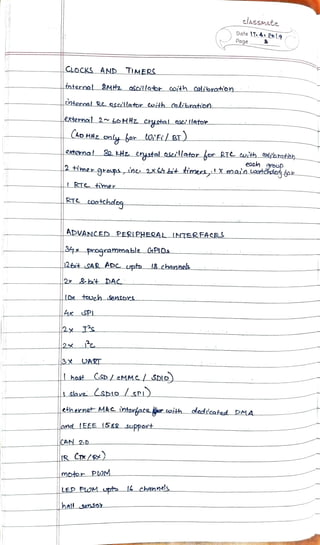 classmate
Date 17.4.2019
Page 2
CLOCKS AND TIMERS
internal 8MHz oscillator with calibration
internal RC oscillator with calibration
external 2~60MHz crystal oscillator
(40MHz only for WiFi/BT)
external 32 kHz crystal oscillator for RTC with calibration
each group
2 timer groups, inc. 2x64 bit timers, 1 x main watchdog for
1 RTC timer
RTC watchdog
ADVANCED PERIPHERAL INTERFACES
34x programmable GPIOs
12bit SAR ADC upto 18 channels
2x 8-bit DAC
10x touch sensors
4x SPI
2x I²S
2x I²C
3x UART
1 host (SD/eMMC/SDIO)
1 slave (SDIO/SPI)
ethernet MAC interface with dedicated DMA
and IEEE 1588 support
CAN 2.0
IR (TX/RX)
motor PWM
LED PWM upto 16 channels
hall sensor